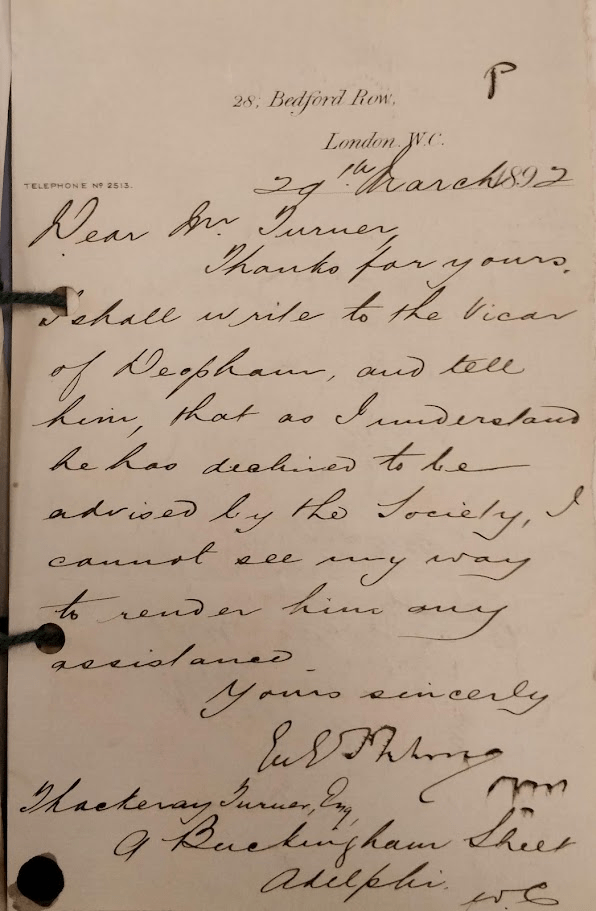 P
28, Bedford Row,
London. W.C.
TELEPHONE Nº 2513.
29th March 1892
Dear Mr Turner,
Thanks for yours.
I shall write to the Vicar
of Deopham, and tell
him, that as I understand
he has declined to be
advised by the Society, I
cannot see my way
to render him any
assistance.
Yours sincerely
Thackeray Turner, Esq,
9 Buckingham Street
Adelphi. W.C